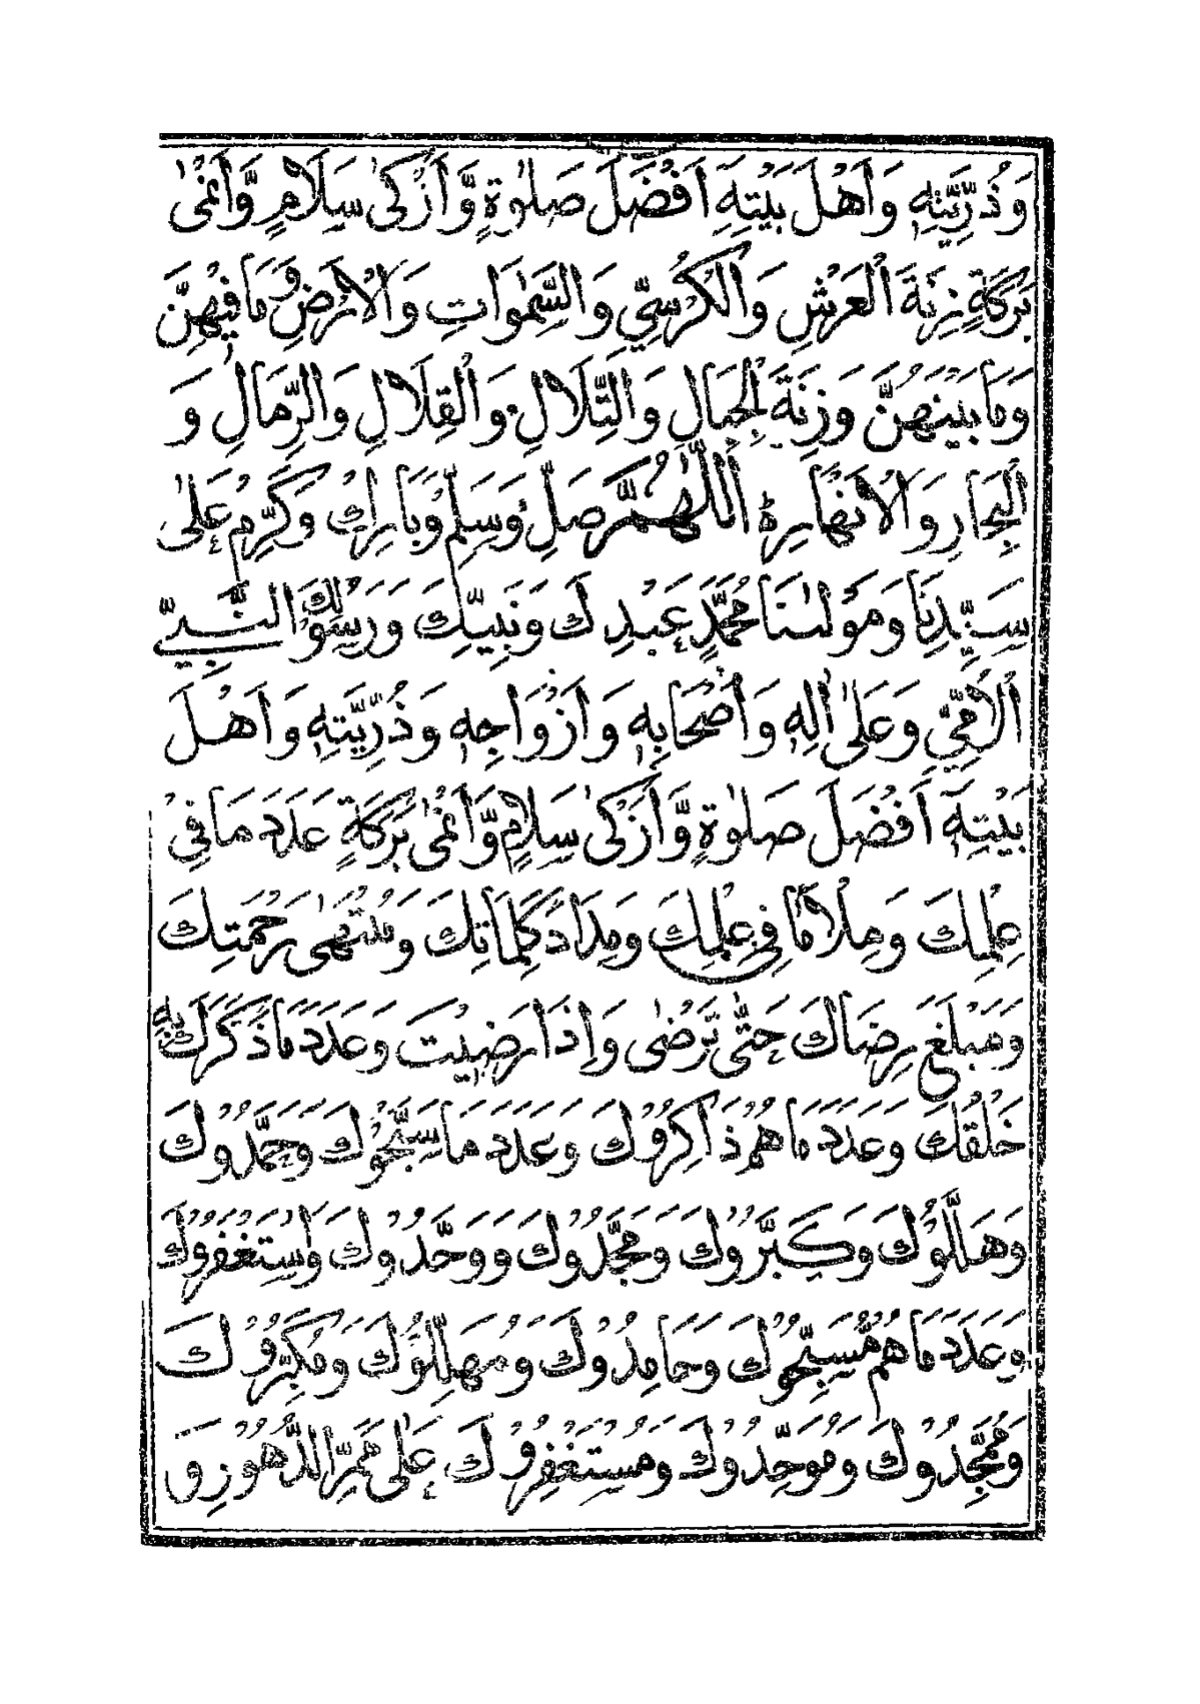 وَذُرِّيَّتِهٖ وَاَهْلَ بَيْتِهٖٓ اَفْضَلَ صَلٰوةٍ وَّاَزْكٰى سَلَامٍ وَّاَنْمٰى
بَرَكَةٍ زِنَةَ الْعَرْشِ وَالْكُرْسِيِّ وَالسَّمٰوَاتِ وَالْاَرْضِ وَمَا فِيْهِنَّ
وَمَا بَيْنَهُنَّ وَزِنَةَ الْجِبَالِ وَالتِّلَالِ وَالْقِلَالِ وَالرِّمَالِ وَ
الْبِحَارِ وَالْاَنْهَارِ ۃ اَللّٰهُمَّ صَلِّ وَسَلِّمْ وَبَارِكْ وَكَرِّمْ عَلٰى
سَيِّدِنَا وَمَوْلٰىنَا مُحَمَّدٍ عَبْدِكَ وَنَبِيِّكَ وَرَسُوْلِكَ النَّبِيِّ
الْاُمِّيِّ وَعَلٰى اٰلِهٖ وَاَصْحَابِهٖ وَاَزْوَاجِهٖ وَذُرِّيَّتِهٖ وَاَهْلَ
بَيْتِهٖٓ اَفْضَلَ صَلٰوةٍ وَّاَزْكٰى سَلَامٍ وَّاَنْمٰى بَرَكَةٍ عَدَدَ مَا فِيْ
عِلْمِكَ وَمِلْاَ مَا فِيْ عِلْمِكَ وَمِدَادَ كَلِمَاتِكَ وَمُنْتَهٰى رَحْمَتِكَ
وَمَبْلَغَ رِضَاكَ حَتّٰى تَرْضٰى وَاِذَا رَضِيْتَ وَعَدَدَ مَا ذَكَرَكَ بِهٖ
خَلْقُكَ وَعَدَدَ مَا هُمْ ذَاكِرُوْكَ وَعَدَدَ مَا سَبَّحُوْكَ وَحَمِدُوْكَ
وَهَلَّلُوْكَ وَكَبَّرُوْكَ وَمَجَّدُوْكَ وَوَحَّدُوْكَ وَاسْتَغْفَرُوْكَ
وَعَدَدَ مَا هُمْ مُّسَبِّحُوْكَ وَحَامِدُوْكَ وَمُهَلِّلُوْكَ وَمُكَبِّرُوْكَ
وَمُمَجِّدُوْكَ وَمُوَحِّدُوْكَ وَمُسْتَغْفِرُوْكَ عَلٰى مَمَرِّ الدُّهُوْرِ وَ